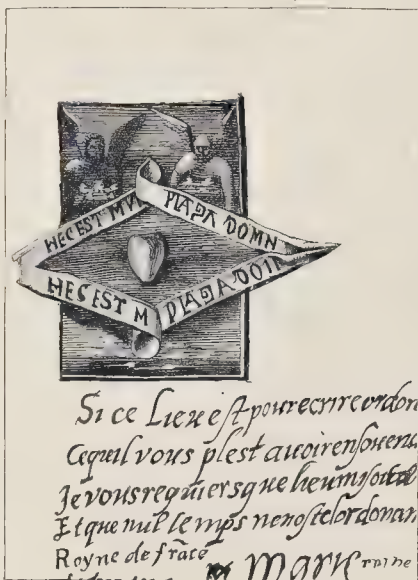 HEC EST MVN PLAGA DOMN
HEC EST M PLAGA DOII
Si ce Lieu est pour ecrire ordon
Ce qu'il vous plest auoir en souenu
Je vous requiers que lieu m'y soit
Et que nul temps n'en oste l'ordonan
Royne de france
Marie